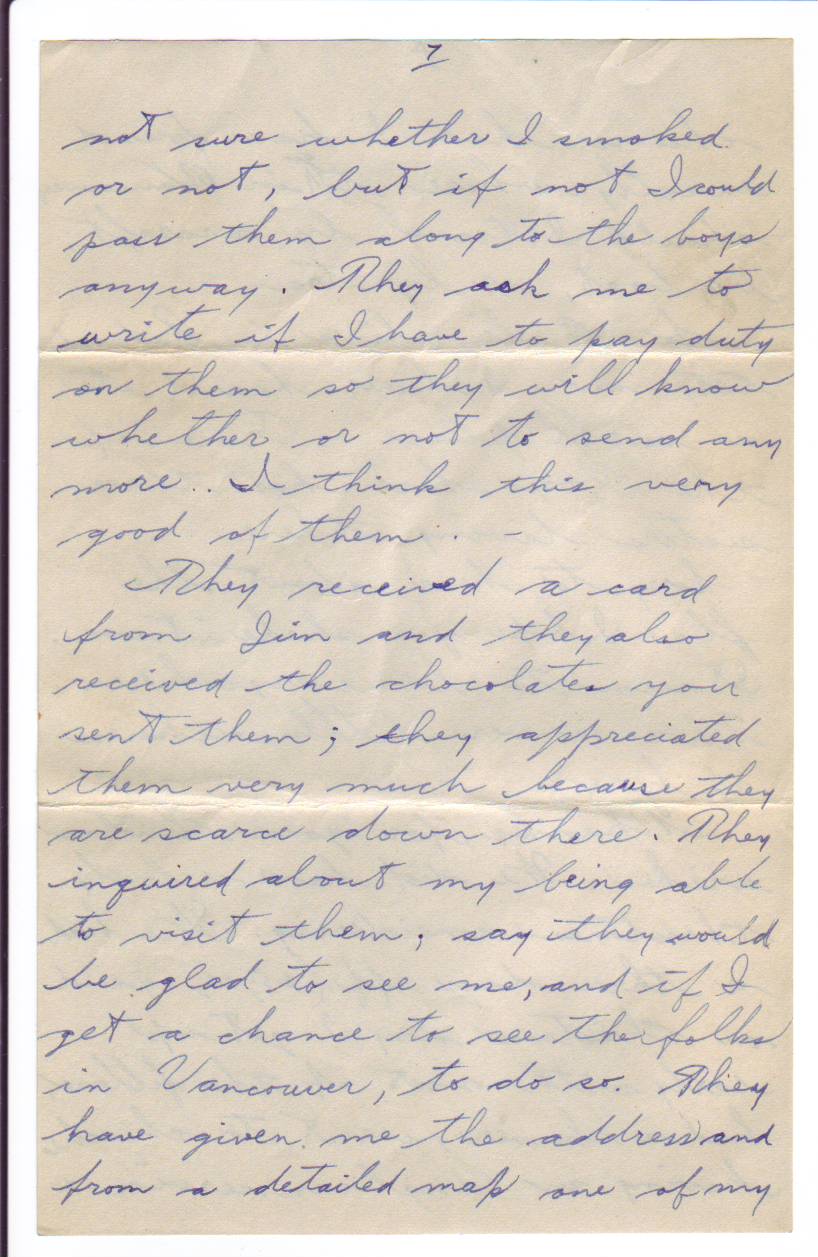 7
not sure whether I smoked
or not, but if not I could
pass them along to the boys
anyway. They ask me to
write if I have to pay duty
on them so they will know
whether or not to send any
more.. I think this very
good of them. -
They received a card
from Jim and they also
received the chocolates you
sent them; they appreciated
them very much because they
are scarce down there. They
inquired about my being able
to visit them; say they would
be glad to see me, and if I
get a chance to see the folks
in Vancouver, to do so. They
have given me the address and
from a detailed map one of my